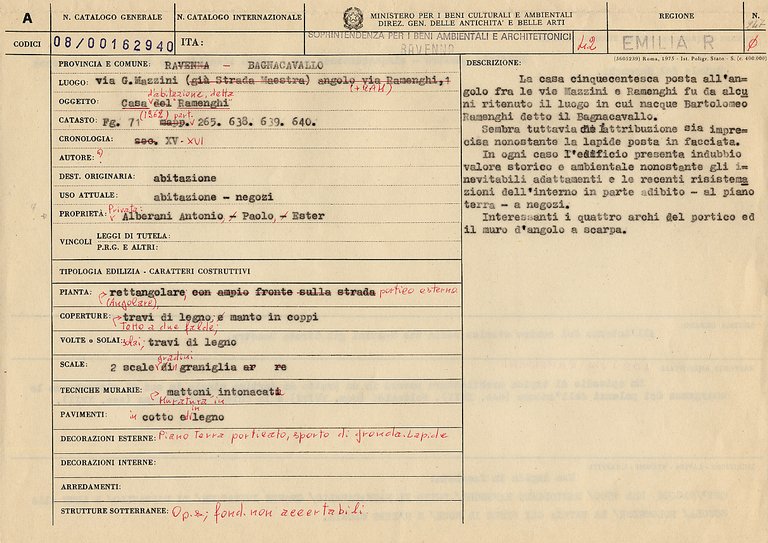 A
N. CATALOGO GENERALE
N. CATALOGO INTERNAZIONALE
MINISTERO PER I BENI CULTURALI E AMBIENTALI
DIREZ. GEN. DELLE ANTICHITA' E BELLE ARTI
REGIONE
N.
CODICI
08/00162940
ITA:
SOPRINTENDENZA PER I BENI AMBIENTALI E ARCHITETTONICI
RAVENNA
42
EMILIA R
(3603239) Roma, 1975 - Ist. Poligr. Stato - S. (c. 400.000)
PROVINCIA E COMUNE: RAVENNA - BAGNACAVALLO
LUOGO: via G.Mazzini (già Strada Maestra) angolo via Ramenghi,1
(+RAM)
d'abitazione, detta
OGGETTO: Casa del Ramenghi
(1962) part.
CATASTO: Fg. 71 mapp. 265. 638. 639. 640.
CRONOLOGIA: sec. XV-XVI
AUTORE: ?
DEST. ORIGINARIA: abitazione
USO ATTUALE: abitazione - negozi
PROPRIETÀ: Privata: Alberani Antonio, Paolo, Ester
VINCOLI
LEGGI DI TUTELA:
P.R.G. E ALTRI:
TIPOLOGIA EDILIZIA - CARATTERI COSTRUTTIVI
PIANTA: rettangolare, con ampio fronte sulla strada portico esterno
(Angolare),
COPERTURE: travi di legno, e manto in coppi
Tetto a due falde;
VOLTE o SOLAI: solai, travi di legno
gradini
SCALE: 2 scale di graniglia ar re
TECNICHE MURARIE: mattoni intonacati
Muratura in
PAVIMENTI: in cotto e in legno
DECORAZIONI ESTERNE: Piano Terra porticato, sporto di gronda. Lapide
DECORAZIONI INTERNE:
ARREDAMENTI:
STRUTTURE SOTTERRANEE: fond. non accertabili
DESCRIZIONE:
La casa cinquecentesca posta all'an=
golo fra le vie Mazzini e Ramenghi fu da alcu
ni ritenuto il luogo in cui nacque Bartolomeo
Ramenghi detto il Bagnacavallo.
Sembra tuttavia che l'attribuzione sia impre=
cisa nonostante la lapide posta in facciata.
In ogni caso l'edificio presenta indubbio
valore storico e ambientale nonostante gli i=
nevitabili adattamenti e le recenti risistema
zioni dell'interno in parte adibito - al piano
terra - a negozi.
Interessanti i quattro archi del portico ed
il muro d'angolo a scarpa.